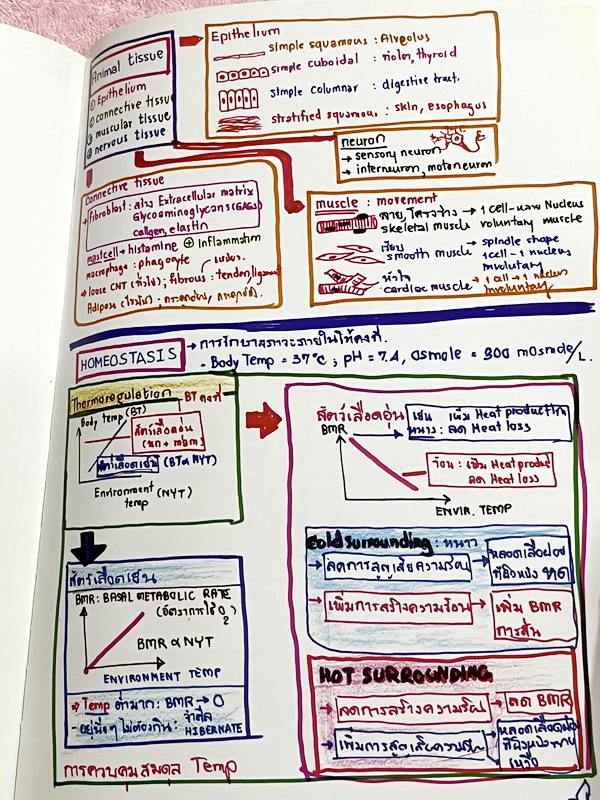 Animal tissue
① Epithelium
② connective tissue
③ muscular tissue
④ nervous tissue
Epithelium
simple squamous : Alveolus
simple cuboidal : ท่อไต, thyroid
simple columnar : digestive tract.
stratified squamous : skin, esophagus
neuron
→ sensory neuron
→ interneuron, motorneuron
connective tissue
→ Fibroblast : สร้าง Extracellular matrix
Glycoaminoglycans (GAGs)
collgen, elastin
mastcell → histamine ⊕ Inflammation
macrophage : phagocyte
→ loose CNT (ทั่วไป) ; fibrous : tendon, ligament
Adipose (ไขมัน) ;
muscle : movement
ลาย, โครงร่าง → 1 cell - หลาย Nucleus
skeletal muscle voluntary muscle
เรียบ → spindle shape
smooth muscle 1 cell - 1 nucleus
involutary
หัวใจ → 1 cell → 1 nucleus
cardiac muscle involuntary
HOMEOSTASIS → การรักษาสภาวะภายในให้คงที่.
- Body Temp = 37°c ; pH = 7.4, Osmole = 300 mOsmole/L.
Thermoregulation
BT คงที่
Body temp (BT)
สัตว์เลือดอุ่น
(นก + mam)
สัตว์เลือดเย็น (BT ∝ NYT)
Environment (NYT)
temp
สัตว์เลือดอุ่น
BMR
เย็น เพิ่ม Heat production
หนาว : ลด Heat loss
ร้อน : เพิ่ม Heat produc
ลด Heat loss
ENVIR. TEMP
สัตว์เลือดเย็น
BMR : BASAL METABOLIC RATE
(อัตราการใช้ O₂)
BMR ∝ NYT
ENVIRONMENT TEMP
⇒ Temp ต่ำมาก : BMR → 0
อยู่นิ่งๆ ไม่ต้องกิน : จำศีล
HIBERNATE
Cold surrounding : หนาว
ลดการสูญเสียความร้อน → หลอดเลือดฝอย
ที่ผิวหนัง หด
เพิ่มการสร้างความร้อน → เพิ่ม BMR
การสั่น
HOT SURROUNDING
ลดการสร้างความร้อน → ลด BMR
เพิ่มการสูญเสียความร้อน → หลอดเลือดฝอย
ที่ผิวหนังขยาย
เหงื่อ
การควบคุมสมดุล Temp